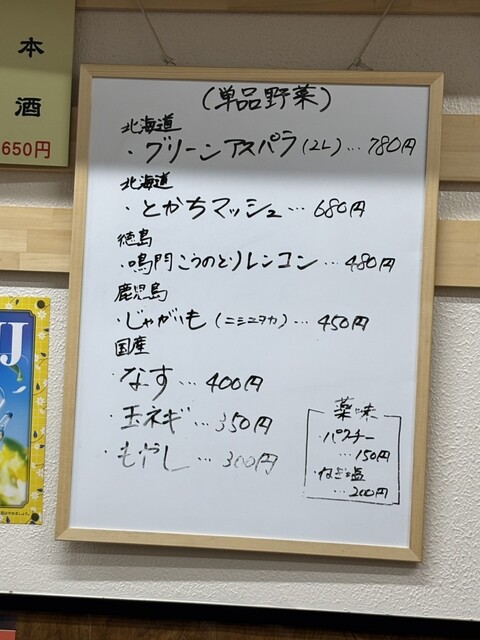 本
酒
650円
(単品野菜)
北海道
・グリーンアスパラ(2L)…780円
北海道
・とかちマッシュ…680円
徳島
・鳴門こうのとりレンコン…480円
鹿児島
・じゃがいも(ニシユタカ)…450円
国産
・なす…400円
・玉ネギ…350円
・もやし…300円
薬味
・パクチー
…150円
・ねぎ塩
…200円